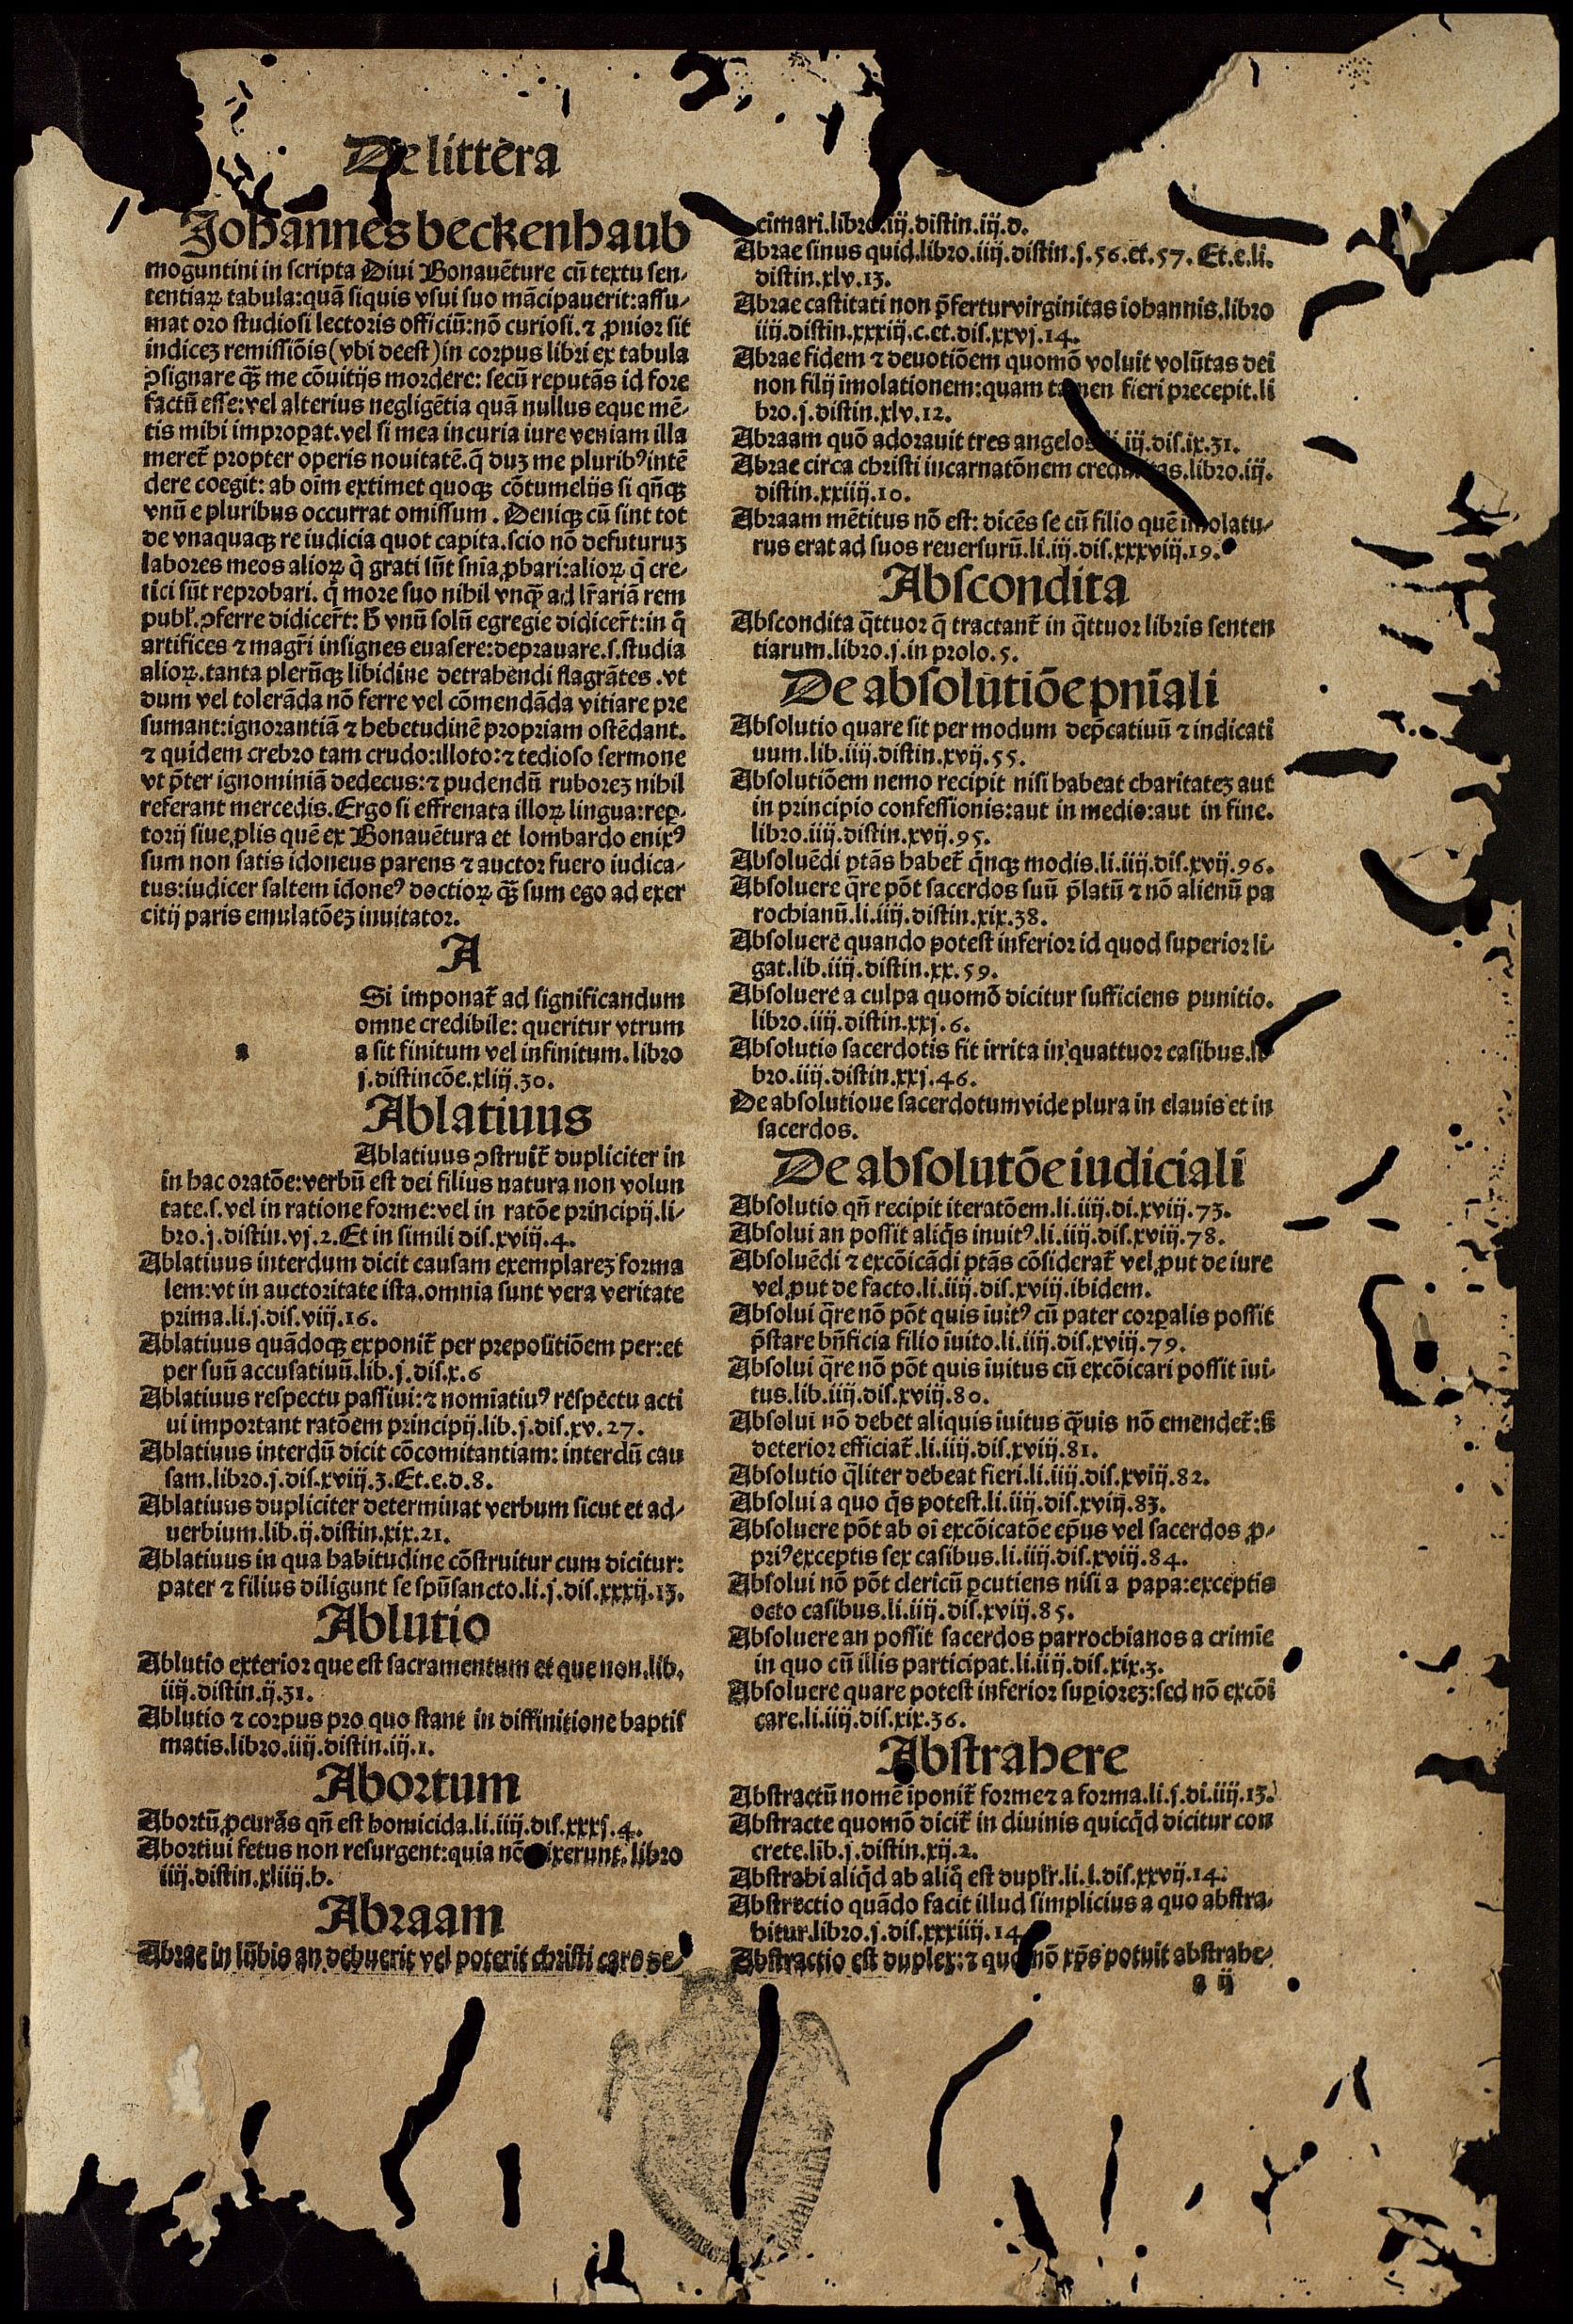 De littera
Johannes beckenhaub
moguntini in scripta Diui Bonauẽture cũ textu sen-
tentiaꝝ tabula:quã siquis vsui suo mãcipauerit:assu-
mat oro studiosi lectoris officiũ:nõ curiosi.⁊ ꝓnior sit
indiceꝫ remissiõis (vbi deest) in corpus libri ex tabula
ꝯsignare qꝫ̃ me cõuitijs mordere: secũ reputãs id fore
factũ esse:vel alterius negligẽtia quã nullus eque mẽ-
tis mihi impropat.vel si mea incuria iure veniam illa
meret̃ propter operis nouitatẽ.q̃ duꝫ me pluribꝰ intẽ
dere coegit: ab oĩm extimet quoqꝫ cõtumelijs si qñqꝫ
vnũ e pluribus occurrat omissum. Deniqꝫ cũ sint tot
de vnaquaqꝫ re iudicia quot capita.scio nõ defuturuꝫ
labores meos alioꝝ q̃ grati sũt sñia ꝓbari:alioꝝ q̃ cre-
tici sũt reprobari. q̃ more suo nihil vnqꝫ̃ ad lr̃ariã rem
publ'.ꝓferre didicer̃t: h̃ vnũ solũ egregie didicer̃t:in q̃
artifices ⁊ magr̃i insignes euasere:deprauare.s.studia
alioꝝ.tanta plerũqꝫ libidine detrahendi flagrãtes.vt
dum vel tolerãda nõ ferre vel cõmendãda vitiare pre
sumant:ignorantiã ⁊ hebetudinẽ propriam ostẽdant.
⁊ quidem crebro tam crudo:illoto:⁊ tedioso sermone
vt p̃ter ignominiã dedecus:⁊ pudendũ ruboreꝫ nihil
referant mercedis.Ergo si effrenata illoꝝ lingua:rep̱-
torij siue ꝓlis quẽ ex Bonauẽtura et lombardo enixꝰ
sum non satis idoneus parens ⁊ auctor fuero iudica-
tus:iudicer saltem idoneꝰ doctioꝝ qꝫ̃ sum ego ad exer
citij paris emulatõeꝫ inuitator.
A
Si imponat̃ ad significandum
omne credibile: queritur vtrum
a
a sit finitum vel infinitum.libro
j.distincõe.xliij.30.
Ablatiuus
Ablatiuus ꝯstruit̃ dupliciter in
in hac oratõe:verbũ est dei filius natura non volun
tate.s.vel in ratione forme:vel in ratõe principij.li-
bro.j.distin.vj.2.Et in simili dis.xviij.4.
Ablatiuus interdum dicit causam exemplareꝫ forma
lem:vt in auctoritate ista.omnia sunt vera veritate
prima.li.j.dis.viij.16.
Ablatiuus quãdoqꝫ exponit̃ per prepositiõem per:et
per suũ accusatiuũ.lib.j.dis.x.6
Ablatiuus respectu passiui:⁊ nomĩatiuꝰ respectu acti
ui important ratõem principij.lib.j.dis.xv.27.
Ablatiuus interdũ dicit cõcomitantiam: interdũ cau
sam.libro.j.dis.xviij.3.Et.e.d.8.
Ablatiuus dupliciter determinat verbum sicut et ad-
uerbium.lib.ij.distin.xix.21.
Ablatiuus in qua habitudine cõstruitur cum dicitur:
pater ⁊ filius diligunt se spũsancto.li.j.dis.xxxij.13.
Ablutio
Ablutio exterior que est sacramentum et que non.lib.
iiij.distin.ij.31.
Ablutio ⁊ corpus pro quo stant in diffinitione baptis
matis.libro.iiij.distin.iij.1.
Abortum
Abortũ ꝓcurãs qñ est homicida.li.iiij.dis.xxxj.4.
Abortiui fetus non resurgent:quia nõ ixerunt.libro
iiij.distin.xliiij.b.
Abraam
Abrae in lũbis an debuerit vel poterit christi caro de-
cimari.libro.iij.distin.iij.d.
Abrae sinus quid.libro.iiij.distin.j.56.et.57. Et.e.li.
distin.xlv.13.
Abrae castitati non p̃fertur virginitas iohannis.libro
iiij.distin.xxxiij.c.et.dis.xxvj.14.
Abrae fidem ⁊ deuotiõem quomõ voluit volũtas dei
non filij ĩmolationem:quam tamen fieri precepit.li
bro.j.distin.xlv.12.
Abraam quõ adorauit tres angelos li.iij.dis.ix.31.
Abrae circa christi incarnatõnem credulitas.libro.iij.
distin.xxiiij.10.
Abraam mẽtitus nõ est: dicẽs se cũ filio quẽ immolatu-
rus erat ad suos reuersurũ.li.iij.dis.xxxviij.19.
Abscondita
Abscondita q̃ttuor q̃ tractant̃ in q̃ttuor libris senten
tiarum.libro.j.in prolo.5.
De absolutiõe pnĩali
Absolutio quare sit per modum dep̃catiuũ ⁊ indicati
uum.lib.iiij.distin.xvij.55.
Absolutiõem nemo recipit nisi habeat charitateꝫ aut
in principio confessionis:aut in medio:aut in fine.
libro.iiij.distin.xvij.95.
Absoluẽdi ptãs habet̃ q̃nqꝫ modis.li.iiij.dis.xvij.96.
Absoluere q̃re põt sacerdos suũ p̃latũ ⁊ nõ alienũ pa
rochianũ.li.iiij.distin.xix.38.
Absoluere quando potest inferior id quod superior li-
gat.lib.iiij.distin.xx.59.
Absoluere a culpa quomõ dicitur sufficiens punitio.
libro.iiij.distin.xxj.6.
Absolutio sacerdotis fit irrita in quattuor casibus.li
bro.iiij.distin.xxj.46.
De absolutioue sacerdotum vide plura in clauis et in
sacerdos.
De absolutõe iudiciali
Absolutio qñ recipit iteratõem.li.iiij.di.xviij.73.
Absolui an possit aliq̃s inuitꝰ.li.iiij.dis.xviij.78.
Absoluẽdi ⁊ excõicãdi ptãs cõsiderat̃ vel ꝓut de iure
vel ꝓut de facto.li.iiij.dis.xviij.ibidem.
Absolui q̃re nõ põt quis ĩuitꝰ cũ pater corpalis possit
p̃stare bñficia filio ĩuito.li.iiij.dis.xviij.79.
Absolui q̃re nõ põt quis ĩuitus cũ excõicari possit ĩui-
tus.lib.iiij.dis.xviij.80.
Absolui nõ debet aliquis ĩuitus q̃uis nõ emendet̃:ß
deterior efficiat̃.li.iiij.dis.xviij.81.
Absolutio q̃liter debeat fieri.li.iiij.dis.xviij.82.
Absolui a quo q̃s potest.li.iiij.dis.xviij.83.
Absoluere põt ab oĩ excõicatõe ep̃us vel sacerdos ꝓ-
priꝰ exceptis sex casibus.li.iiij.dis.xviij.84.
Absolui nõ põt clericũ ꝑcutiens nisi a papa:exceptis
octo casibus.li.iiij.dis.xviij.85.
Absoluere an possit sacerdos parrochianos a crimĩe
in quo cũ illis participat.li.iiij.dis.xix.3.
Absoluere quare potest inferior suꝑioreꝫ:sed nõ excõi
care.li.iiij.dis.xix.36.
Abstrahere
Abstractũ nomẽ ĩponit̃ forme ⁊ a forma.li.j.di.iiij.13.
Abstracte quomõ dicit̃ in diuinis quicq̃d dicitur con
crete.lib.j.distin.xij.2.
Abstrahi aliq̃d ab aliq̃ est duplr̃.li.j.dis.xxvij.14.
Abstrectio quãdo facit illud simplicius a quo abstra-
hitur.libro.j.dis.xxxiiij.14
Abstractio est duplex:⁊ quo nõ xp̃s potuit abstrahe-
a ij